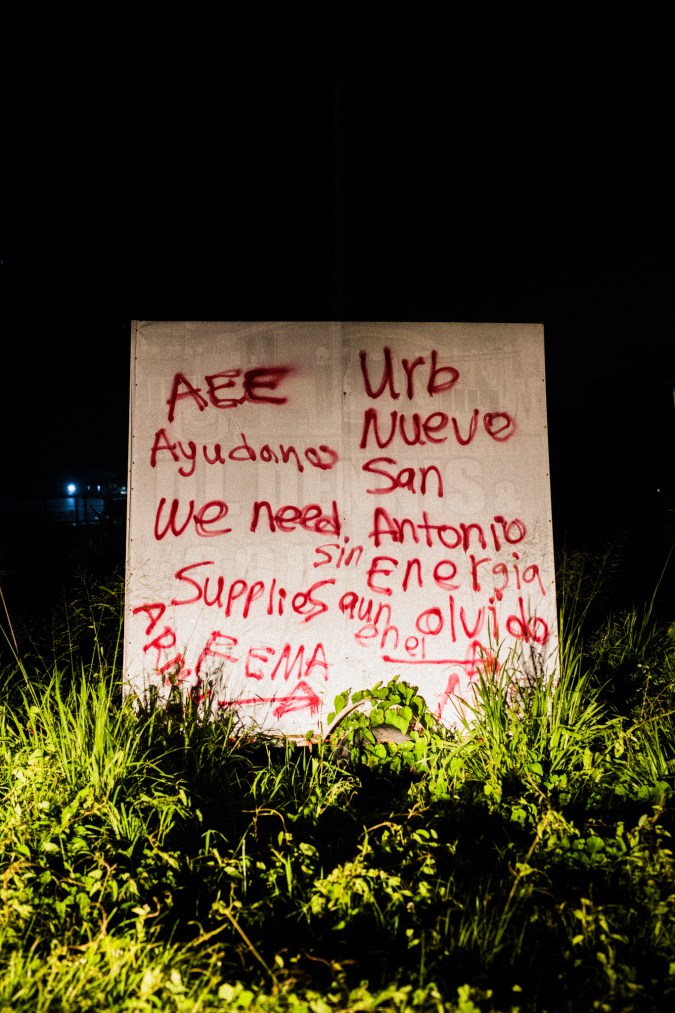 AEE
Ayudano
We need
Supplies
FEMA
Urb
Nuevo
San
Antonio
sin Energia
aun
en el olvido